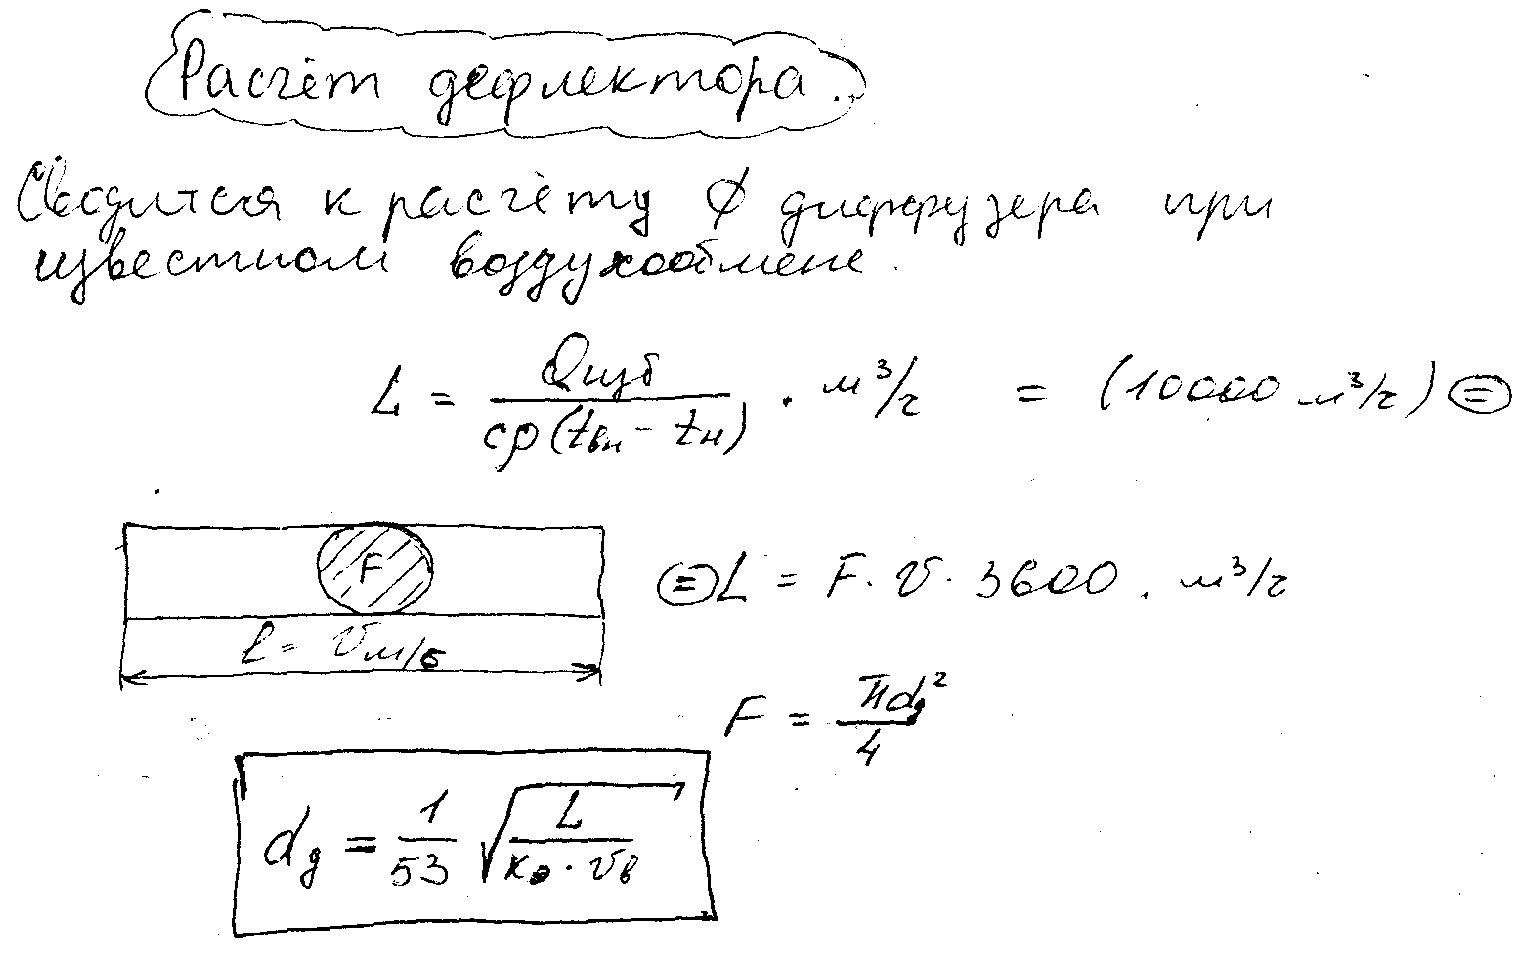 Расчёт дефлектора.
Сводится к расчёту Ø диффузера при
известном воздухообмене.
L = Qизб / cρ(tвн - tн) · м³/ч = (10000 м³/ч) ⊜
F
l = v м/с
⊜ L = F · v · 3600 . м³/ч
F = πdд² / 4
dд = 1/53 √(L / (kэ · vв))